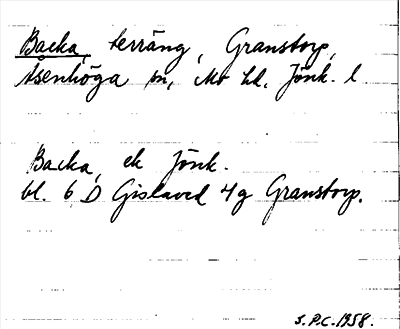 Backa, terräng, Granstorp,
Åsenhöga sn, Mo hd, Jönk. l
Backa, ek Jönk.
bl. 6 D Gislaved 4g Granstorp.
S.P.C. 1958.